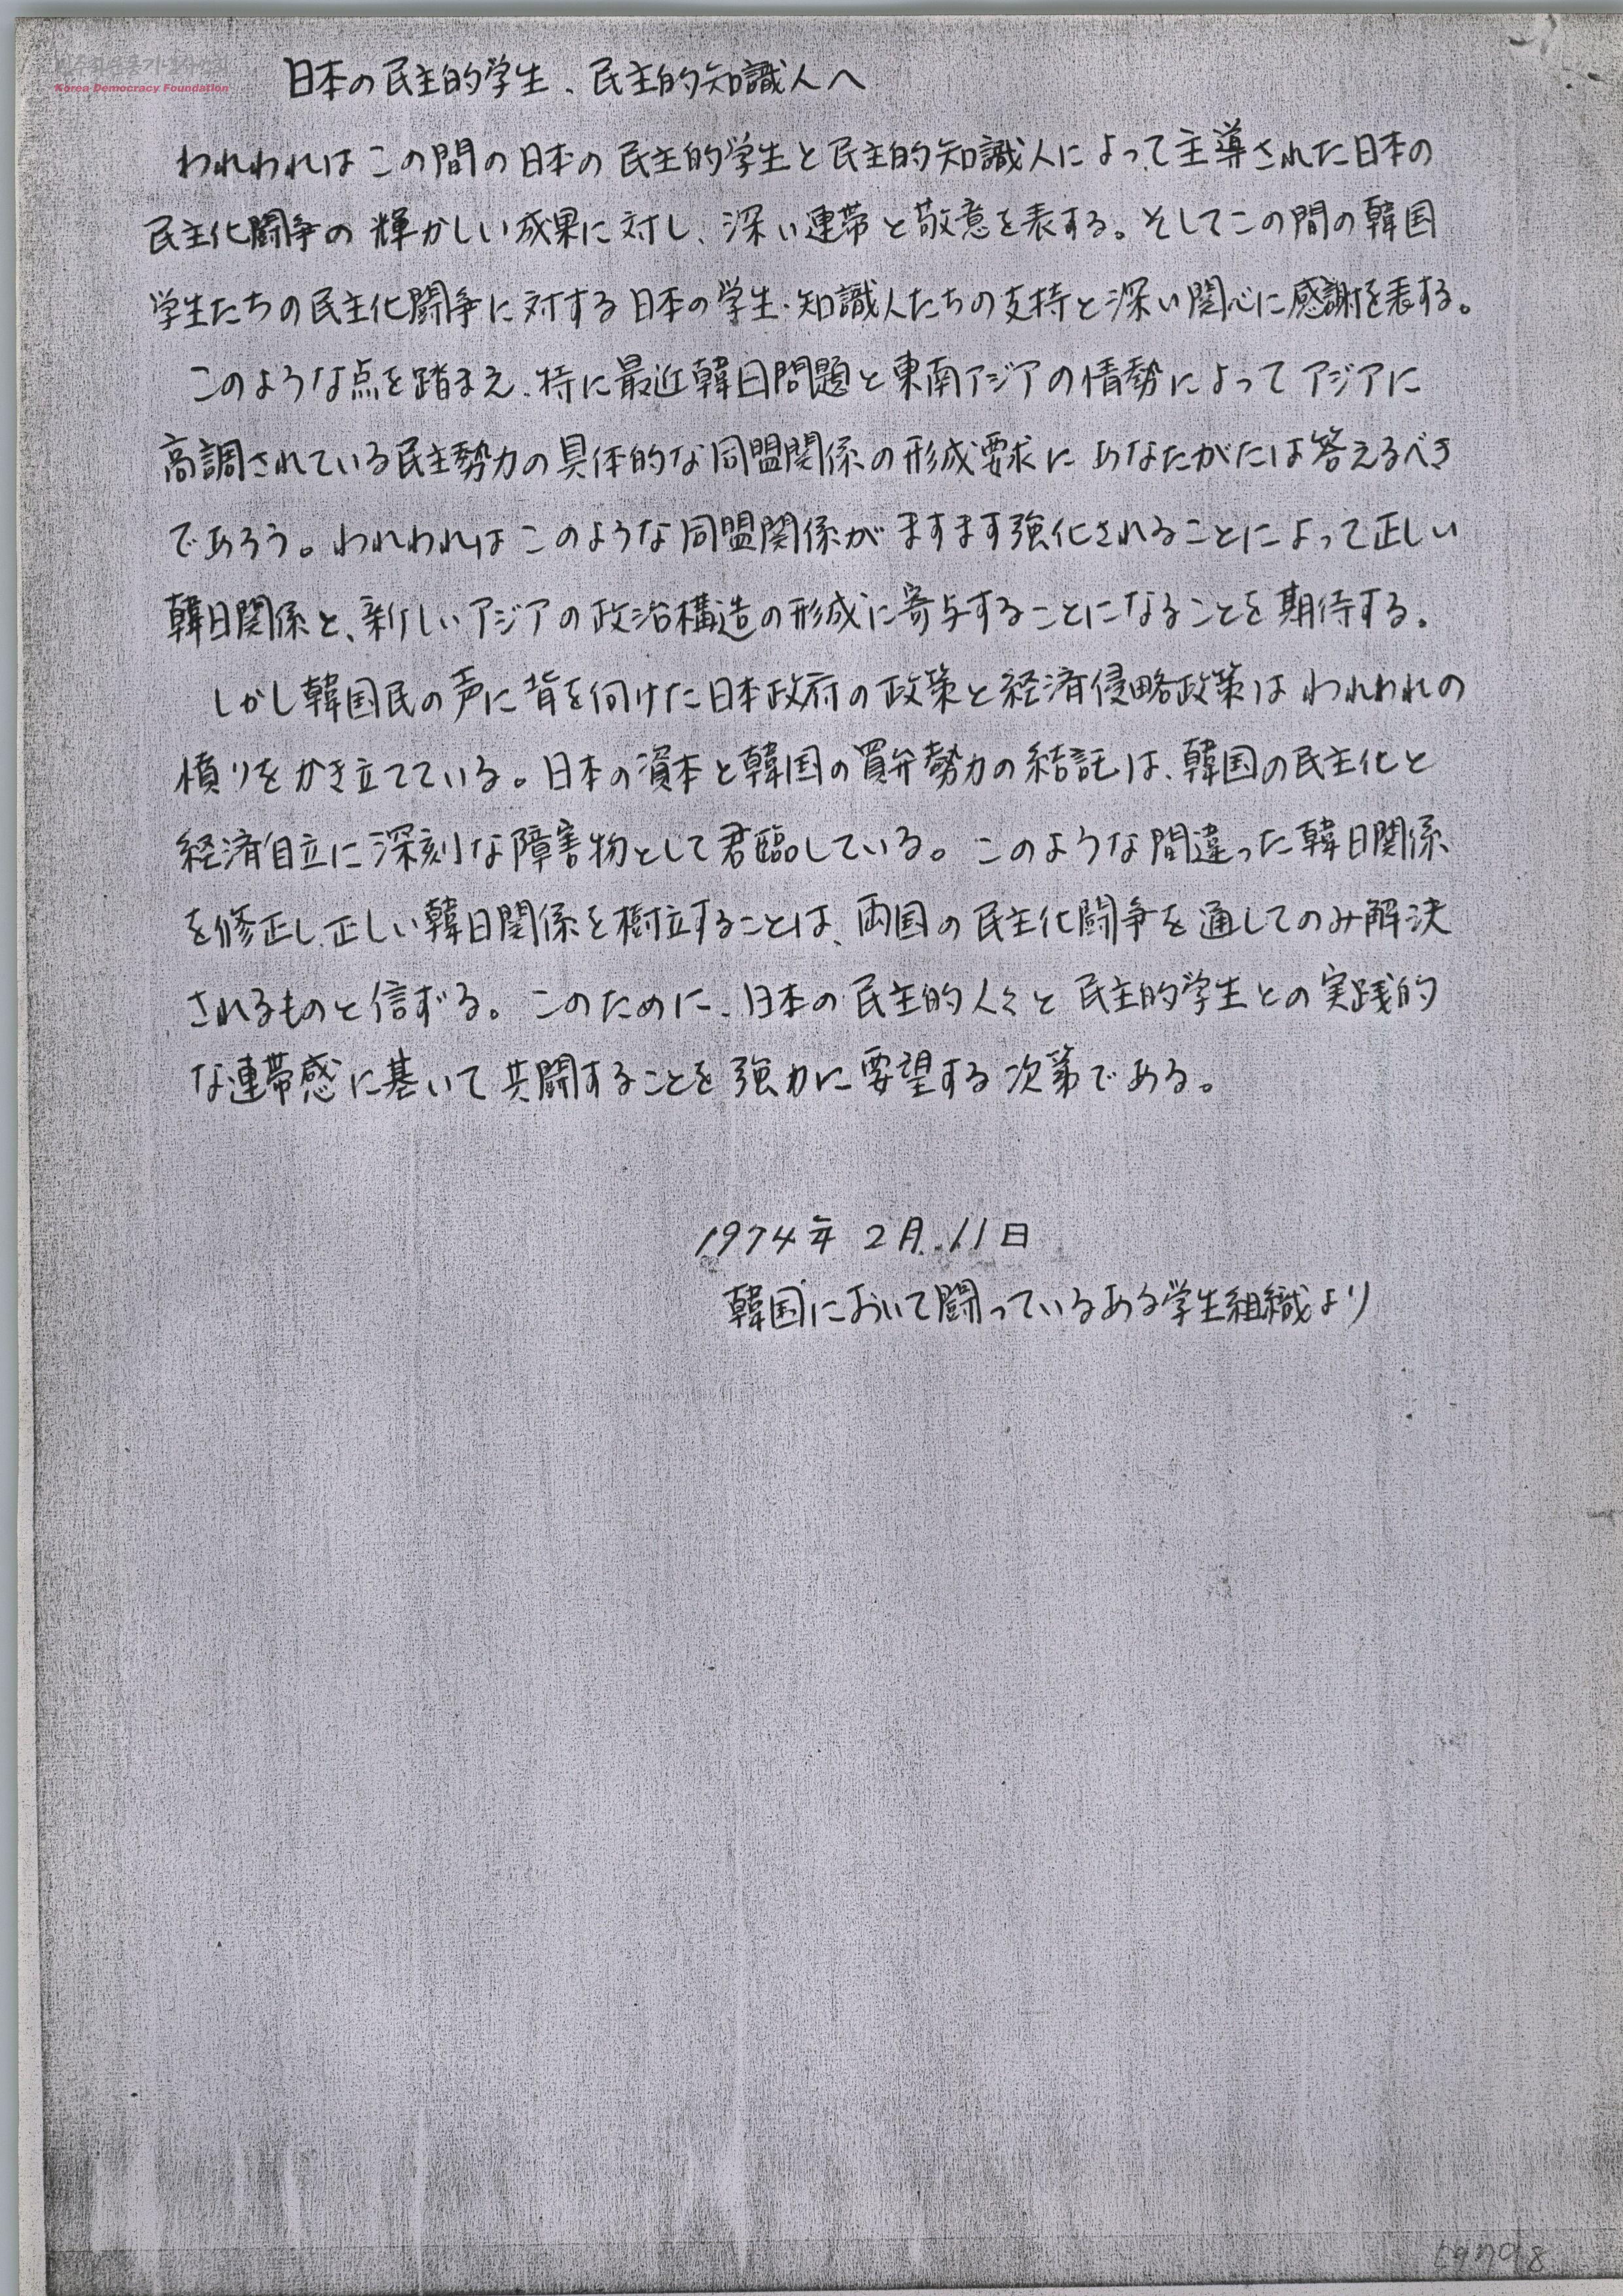 민주화운동기념사업회
Korea Democracy Foundation
日本の民主的学生、民主的知識人へ
われわれはこの間の日本の民主的学生と民主的知識人によって主導された日本の
民主化闘争の輝かしい成果に対し、深い連帯と敬意を表する。そしてこの間の韓国
学生たちの民主化闘争に対する日本の学生・知識人たちの支持と深い関心に感謝を表する。
このような点を踏まえ、特に最近韓日問題と東南アジアの情勢によってアジアに
高調されている民主勢力の具体的な同盟関係の形成要求にあなたがたは答えるべき
であろう。われわれはこのような同盟関係がますます強化されることによって正しい
韓日関係と、新しいアジアの政治構造の形成に寄与することになることを期待する。
しかし韓国民の声に背を向けた日本政府の政策と経済侵略政策はわれわれの
憤りをかき立てている。日本の資本と韓国の買弁勢力の結託は、韓国の民主化と
経済自立に深刻な障害物として君臨している。このような間違った韓日関係
を修正し、正しい韓日関係を樹立することは、両国の民主化闘争を通してのみ解決
されるものと信ずる。このために、日本の民主的人々と民主的学生との実践的
な連帯感に基いて共闘することを強力に要望する次第である。
1974年 2月 11日
韓国において闘っているある学生組織より